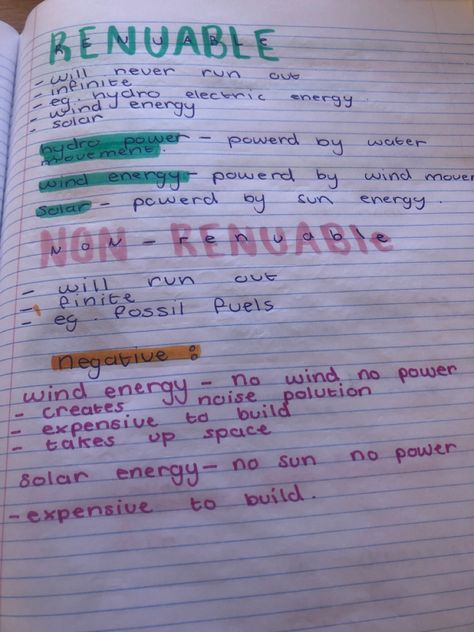 RENUABLE
- will never run out
- infinite
- eg. hydro electric energy.
- wind energy
- solar
hydro power - powerd by water
movement.
wind energy - powerd by wind mover
solar - powerd by sun energy.
NON - renuable
- will run out
- finite
- eg. fossil fuels
negative :
wind energy - no wind no power
- creates noise polution
- expensive to build
- takes up space
solar energy - no sun no power
- expensive to build.